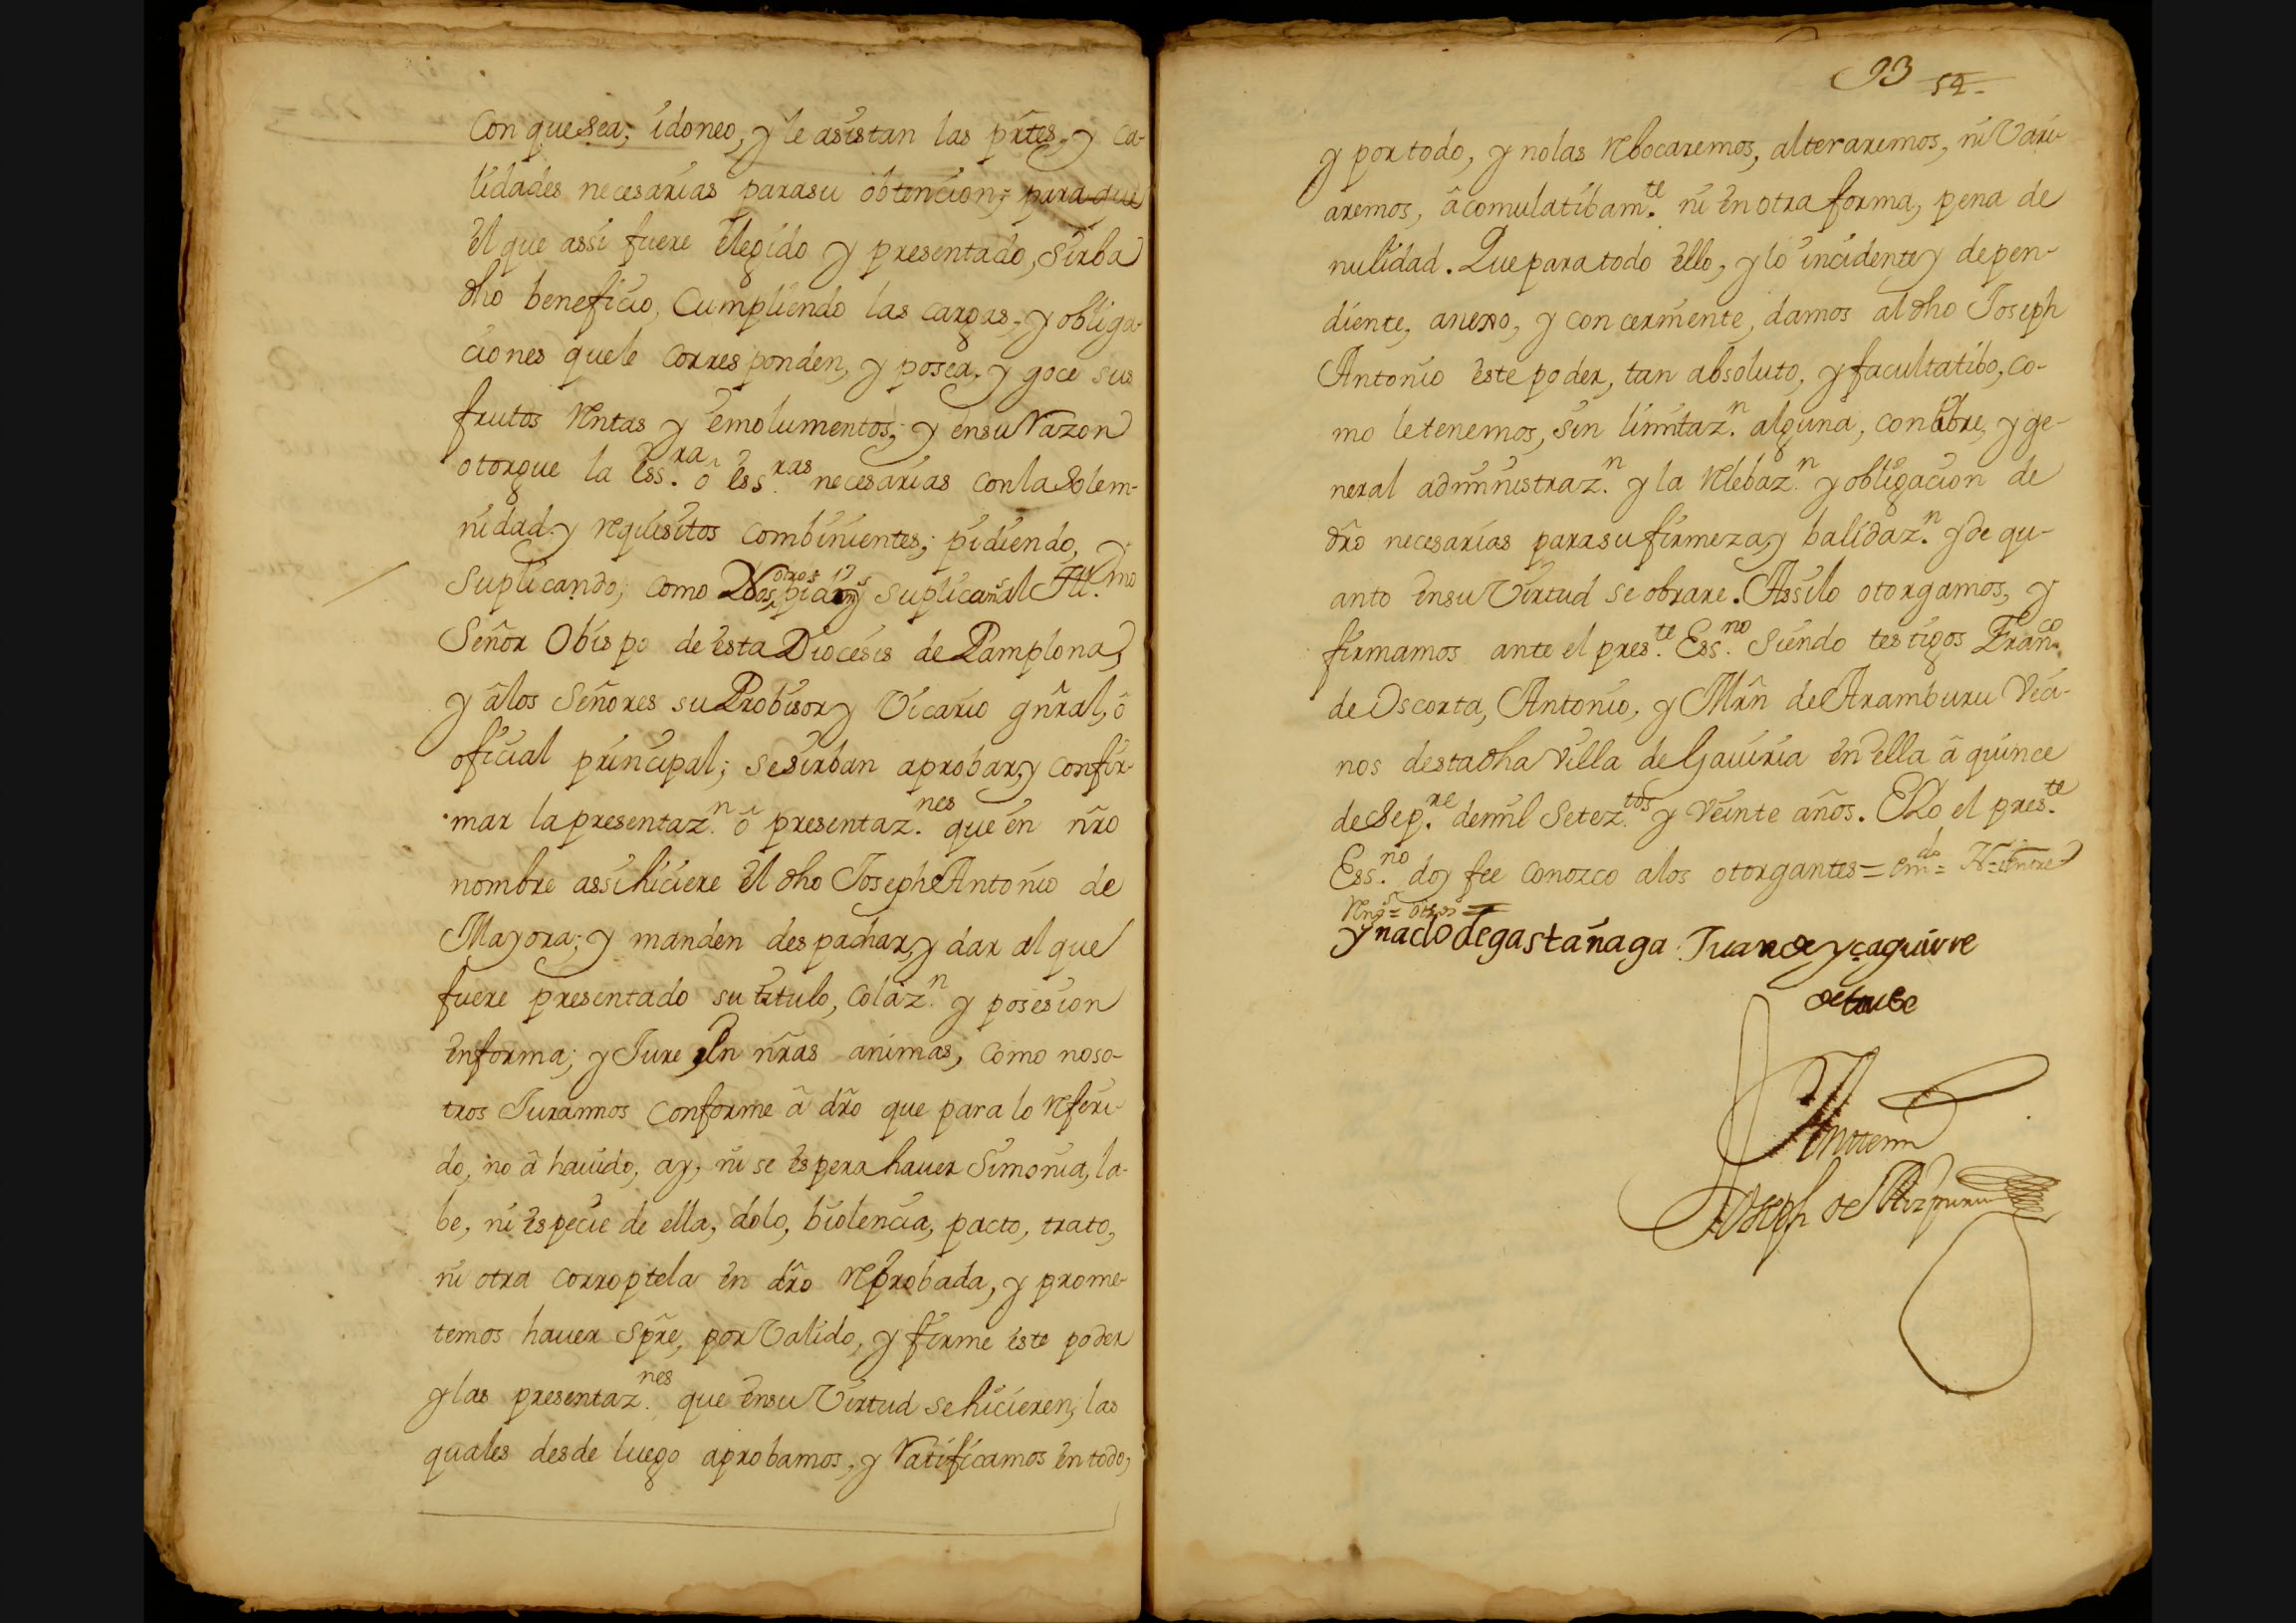 Con que sea; idoneo, y le asistan las prtes, y ca-
lidades necesarias para su obtencion; para que
el que assi fuere elegido y presentado, sirba
dho beneficio, Cumpliendo las cargas, y obliga-
ciones que le corresponden, y posea, y goce sus
frutos Rentas y emolumentos; y en su Razon
otorgue la Ess.ra ô Ess.ras necesarias con la Solem-
nidad y requisitos combinientes; pidiendo, y
Suplicando; como Nosotros pidimos y Suplicamos al Ill.mo
Señor Obispo de esta Diocesis de Pamplona,
y â los Señores su Probisor y Vicario gnral, ô
oficial principal; se sirban aprobar, y confir-
mar la presentaz.n ô presentaz.nes que en nro
nombre assi hiciere el dho Joseph Antonio de
Mayora; y manden despachar, y dar al que
fuere presentado su titulo, Colaz.n y posesion
en forma; y Jure en nras animas, como noso-
tros Juramos conforme â dro que para lo referi-
do, no â hauido, ay, ni se espera hauer Simonia, la-
be, ni especie de ella, dolo, biolencia, pacto, trato,
ni otra corroptela en dro reprobada, y prome-
temos hauer Spre, por Valido, y firme este poder
y las presentaz.nes que en su Virtud se hicieren, las
quales desde luego aprobamos, y Ratificamos en todo,
93 52
y por todo, y no las Rebocaremos, alteraremos, ni Vari-
aremos, âcomulatibam.te ni en otra forma, pena de
nulidad. Que para todo ello, y lo incidente y depen-
diente, anexo, y concerniente, damos al dho Joseph
Antonio este poder, tan absoluto, y facultatibo, co-
mo le tenemos, sin limitaz.n alguna, con libre, y ge-
neral administraz.n y la Relebaz.n y obligacion de
dro necesarias para su firmeza, y balidaz.n y de qu-
anto en su Virtud se obrare. Assi lo otorgamos, y
firmamos ante el pres.te Ess.no Siendo testigos Fran.co
de Oscorta, Antonio, y Mrn de Aramburu Veci-
nos desta dha Villa de Gauiria en ella â quince
de Sep.re de mil Setez.tos y Veinte años. E Yo el pres.te
Ess.no doy fee conozco a los otorgantes = em.do = N = entre
Reng.s = otros =
Ynacio de gastañaga Juan de ycaguirre
de
Antemi
Joseph de Aizpuru